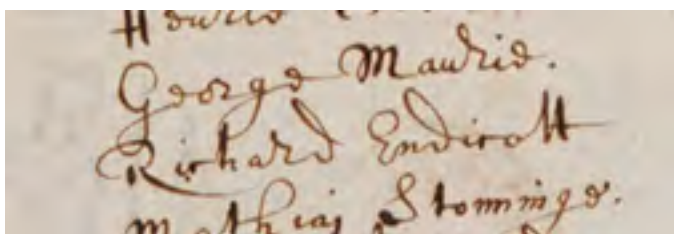 Henrie
George Maudrie.
Richard Endicott
Mathias Stominge.